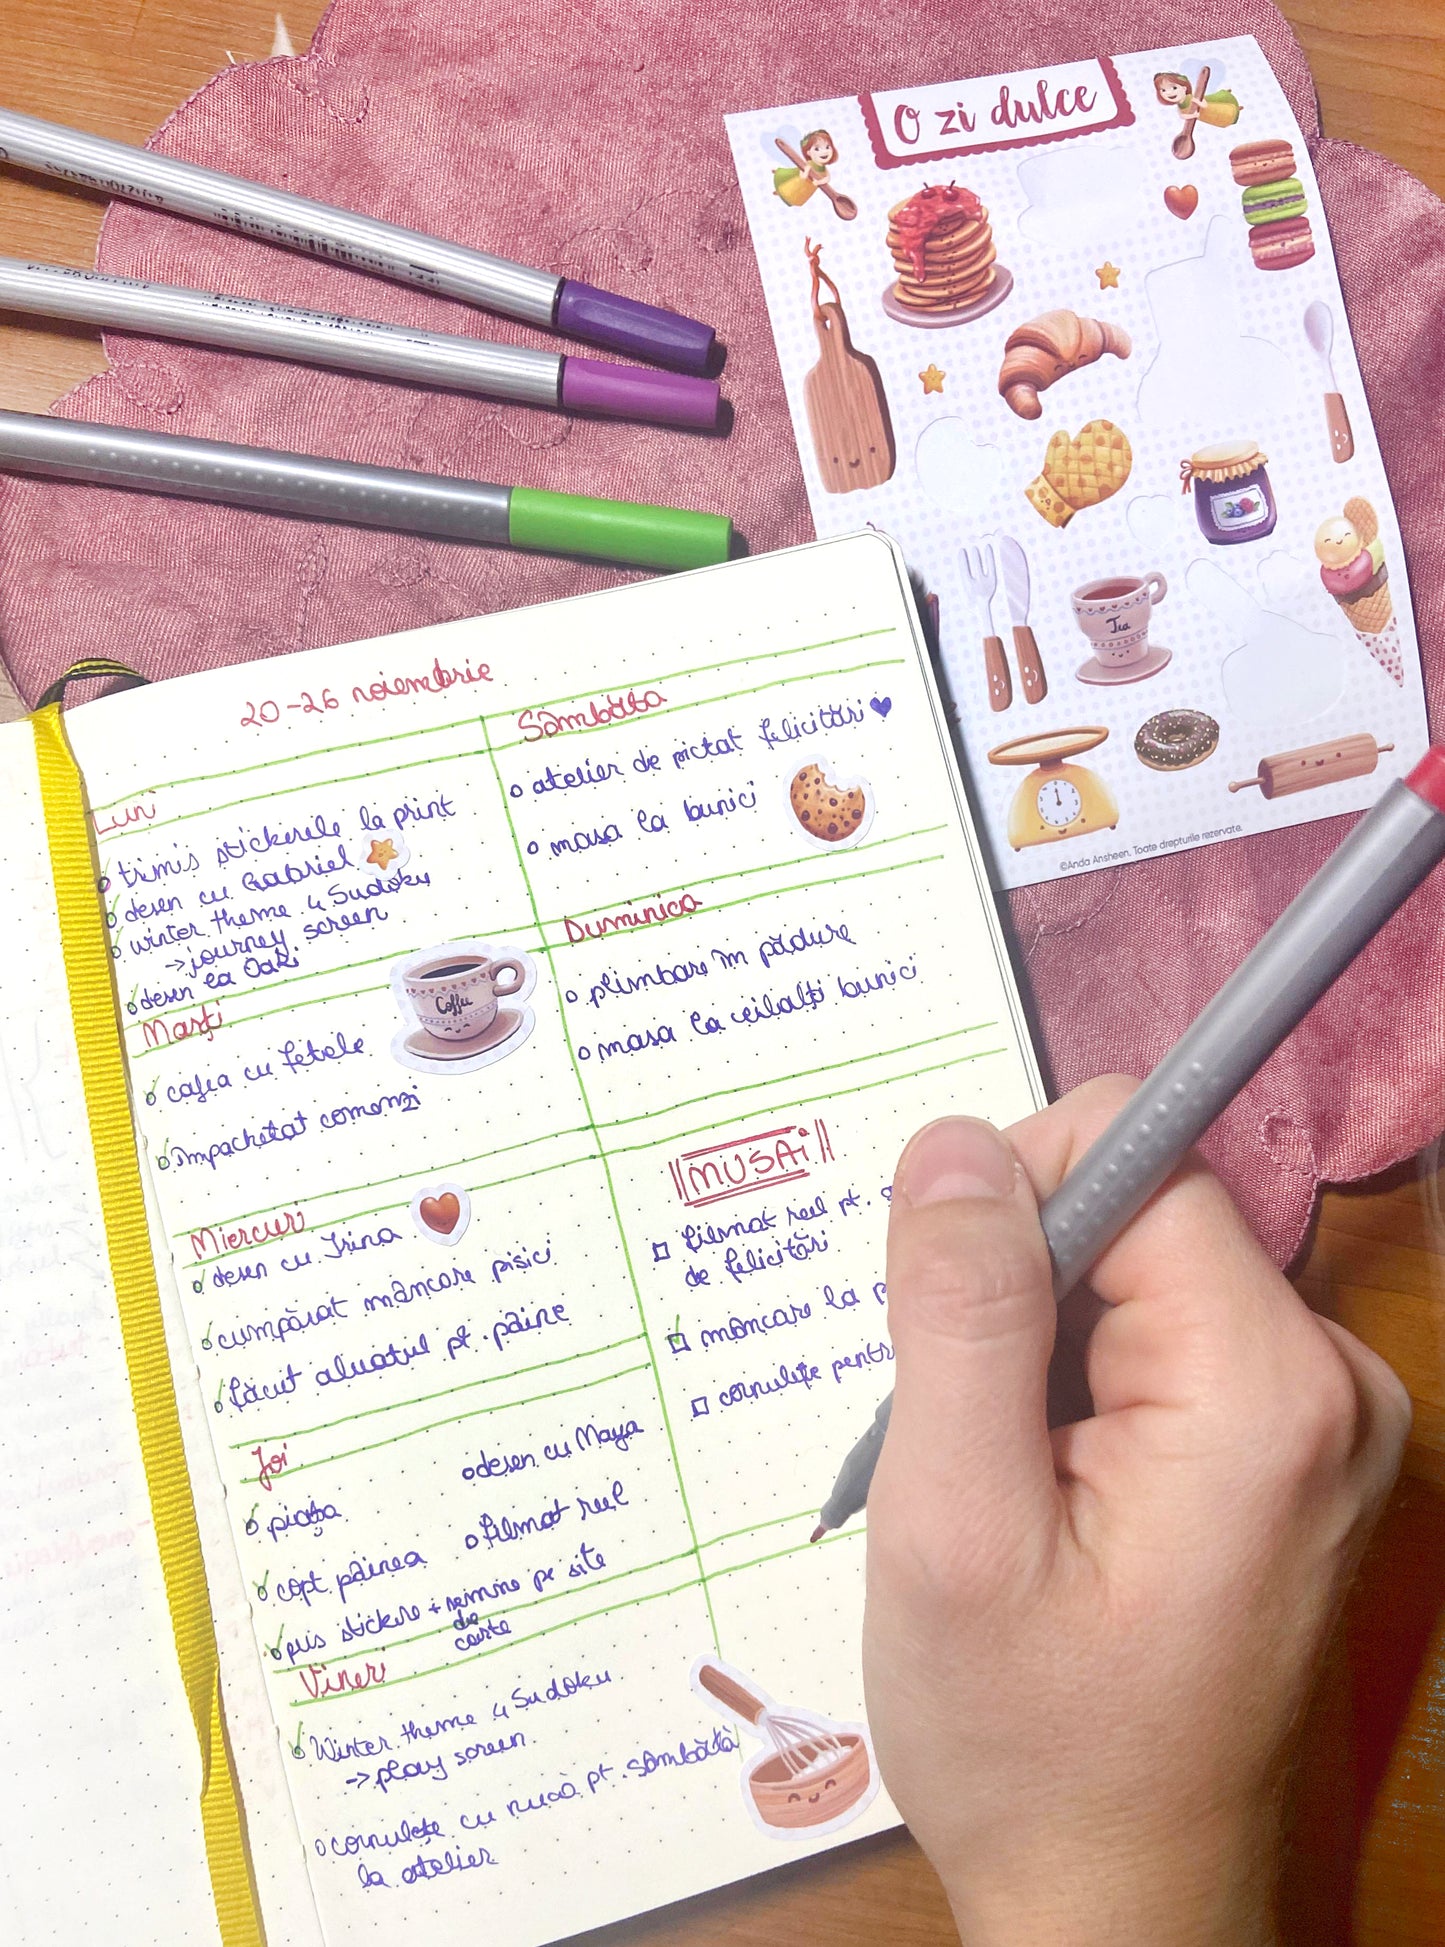 O zi dulce
Tea
©Anda Ansheen. Toate drepturile rezervate.
20-26 noiembrie
Luni
trimis stickerele la print
desen cu Gabriel
winter theme 4 Sudoku
→ journey screen
desen la Oazi
Marți
cafea cu fetele
Coffee
împachetat comenzi
Miercuri
desen cu Irina
cumpărat mâncare pisici
făcut aluatul pt. pâine
Joi
piața
copt pâinea
pus stickere + semne pe site
de
carte
desen cu Maya
filmat reel
Vineri
Winter theme 4 Sudoku
→ play screen
cornulețe cu nucă pt. sâmbătă
la atelier
Sâmbăta
atelier de pictat felicitări
masa la bunici
Duminica
plimbare în pădure
masa la ceilalți bunici
MUSAI
filmat reel pt.
de felicitări
mâncare la
cornulețe